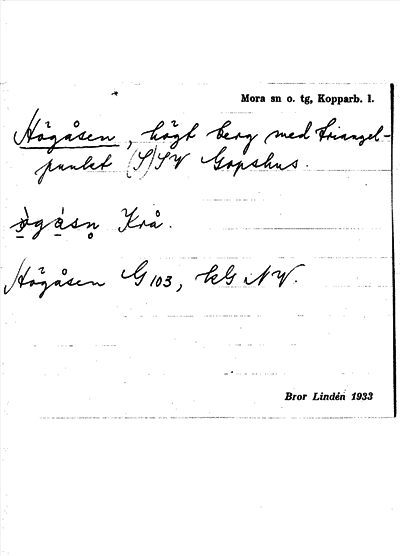 Mora sn o. tg, Kopparb. l.
Högåsen, högt berg med triangel-
punkt (S)SV Gopshus.
ø̀gàsn̥ Krå.
Högåsen G 103, kG NV.
Bror Lindén 1933